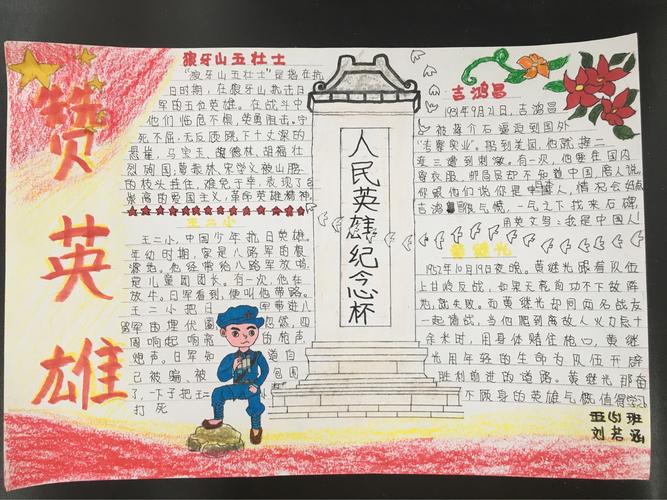 赞英雄
狼牙山五壮士
"狼牙山五壮士"是指在抗
日时期，在狼牙山抗击日
军的五位英雄。在战斗中
他们临危不惧，英勇阻击。宁
死不屈。无反顾跳下十丈深的
悬崖，马宝玉、胡德林、胡福壮
烈殉国，葛振林、宋学义被山腰
的枝头挂住，难免于难，表现了
崇高的爱国主义，革命英雄精神
王二小
王二小，中国少年抗日英雄。
年幼时期，家是八路军的根
源地。他经常给八路军放哨，
是儿童团团长。有一次，他在
放牛。日军看到，便叫他带路。
王二小把日军带进八
路军的埋伏圈，忽然，四
周响起响亮的枪声，
炮声。日军知道自
己被骗、被包围
了，一下子把王二
打死
人民英雄纪念杯
吉鸿昌
1931年9月21日，吉鸿昌
被蒋介石逼迫到国外
"考察实业"。招到美国，他就接二
连三遭到刺激。有一次，他要在国内
寄衣服，邮局却不知道中国，商人说：
你跟他们说你是日本人，情况会好点
吉鸿昌很气愤，一气之下找来石碑，
用英文写：我是中国人！
黄继光
1952年10月19日夜晚。黄继光跟着队伍
上甘岭反战，如果天亮前功不下敌阵
地，就失败。而黄继光却同两名战友
一起请战，当他爬到离敌人火力点十
余米时，用身体赌住枪口，黄继
光用年轻的生命为队伍开辟
胜利前进的道路。黄继光那奋
不顾身的英雄气慨值得学习
五(5)班
刘若涵